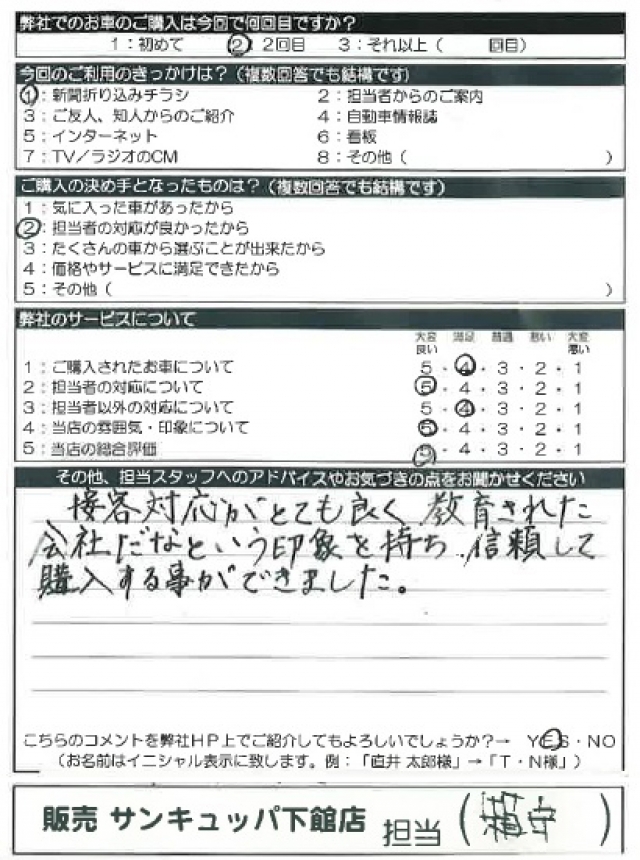 弊社でのお車のご購入は今回で何回目ですか?
1:初めて ②:2回目 3:それ以上( 回目)
今回のご利用のきっかけは?(複数回答でも結構です)
①:新聞折り込みチラシ 2:担当者からのご案内
3:ご友人、知人からのご紹介 4:自動車情報誌
5:インターネット 6:看板
7:TV/ラジオのCM 8:その他( )
ご購入の決め手となったものは?(複数回答でも結構です)
1:気に入った車があったから
②:担当者の対応が良かったから
3:たくさんの車から選ぶことが出来たから
4:価格やサービスに満足できたから
5:その他( )
弊社のサービスについて
大変良い 満足 普通 悪い 大変悪い
1:ご購入されたお車について 5・④・3・2・1
2:担当者の対応について ⑤・4・3・2・1
3:担当者以外の対応について 5・④・3・2・1
4:当店の雰囲気・印象について ⑤・4・3・2・1
5:当店の総合評価 ⑤・4・3・2・1
その他、担当スタッフへのアドバイスやお気づきの点をお聞かせください
接客対応がとても良く教育された
会社だなという印象を持ち、信頼して
購入する事ができました。
こちらのコメントを弊社HP上でご紹介してもよろしいでしょうか?→ YES・NO
(お名前はイニシャル表示に致します。例:「直井 太郎様」→「T・N様」)
販売 サンキュッパ下館店 担当( )